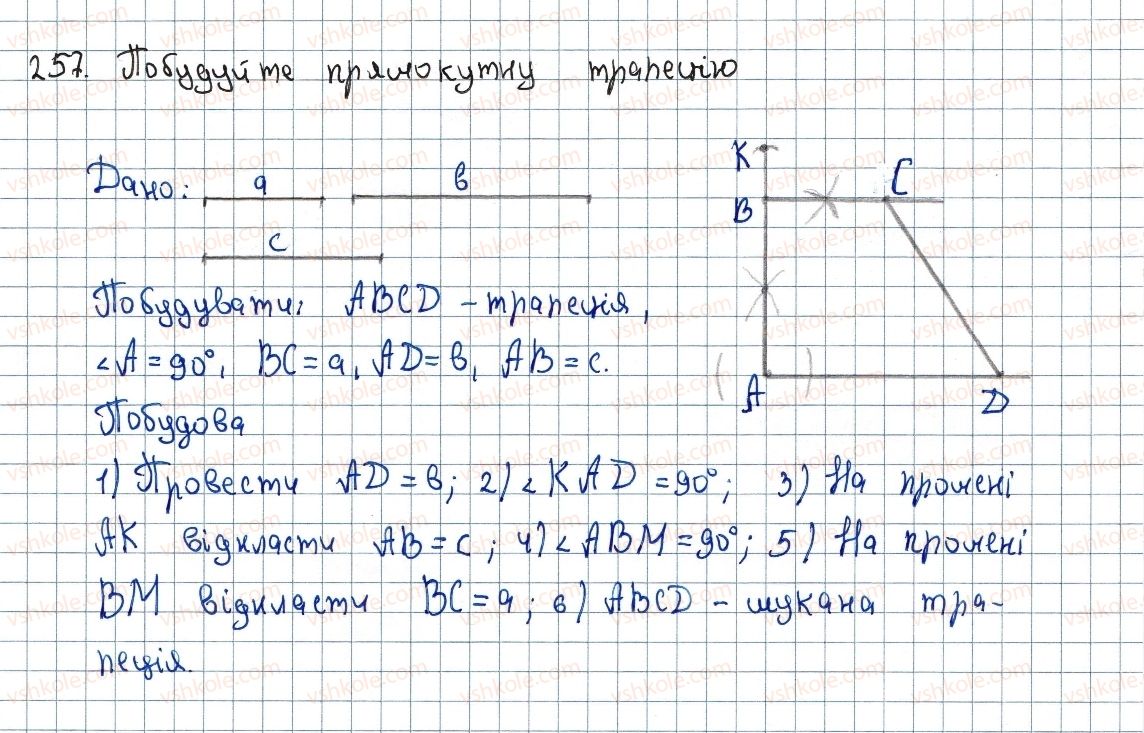 257. Побудуйте прямокутну трапецію
Дано: a b
c
K
B
C
A
D
Побудувати: ABCD – трапеція,
∠A = 90°, BC = a, AD = b, AB = c.
Побудова
1) Провести AD = b; 2) ∠KAD = 90°; 3) На промені
AK відкласти AB = c; 4) ∠ABM = 90°; 5) На промені
BM відкласти BC = a; 6) ABCD – шукана тра-
пеція.
vshkole.com